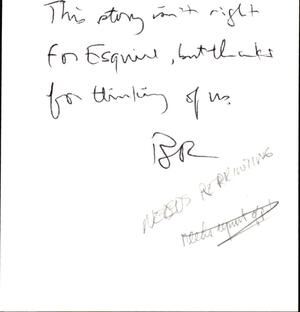 This story isn't right
for Esquire, but thanks
for thinking of us.
BR
NEEDS REPRINTING
needs